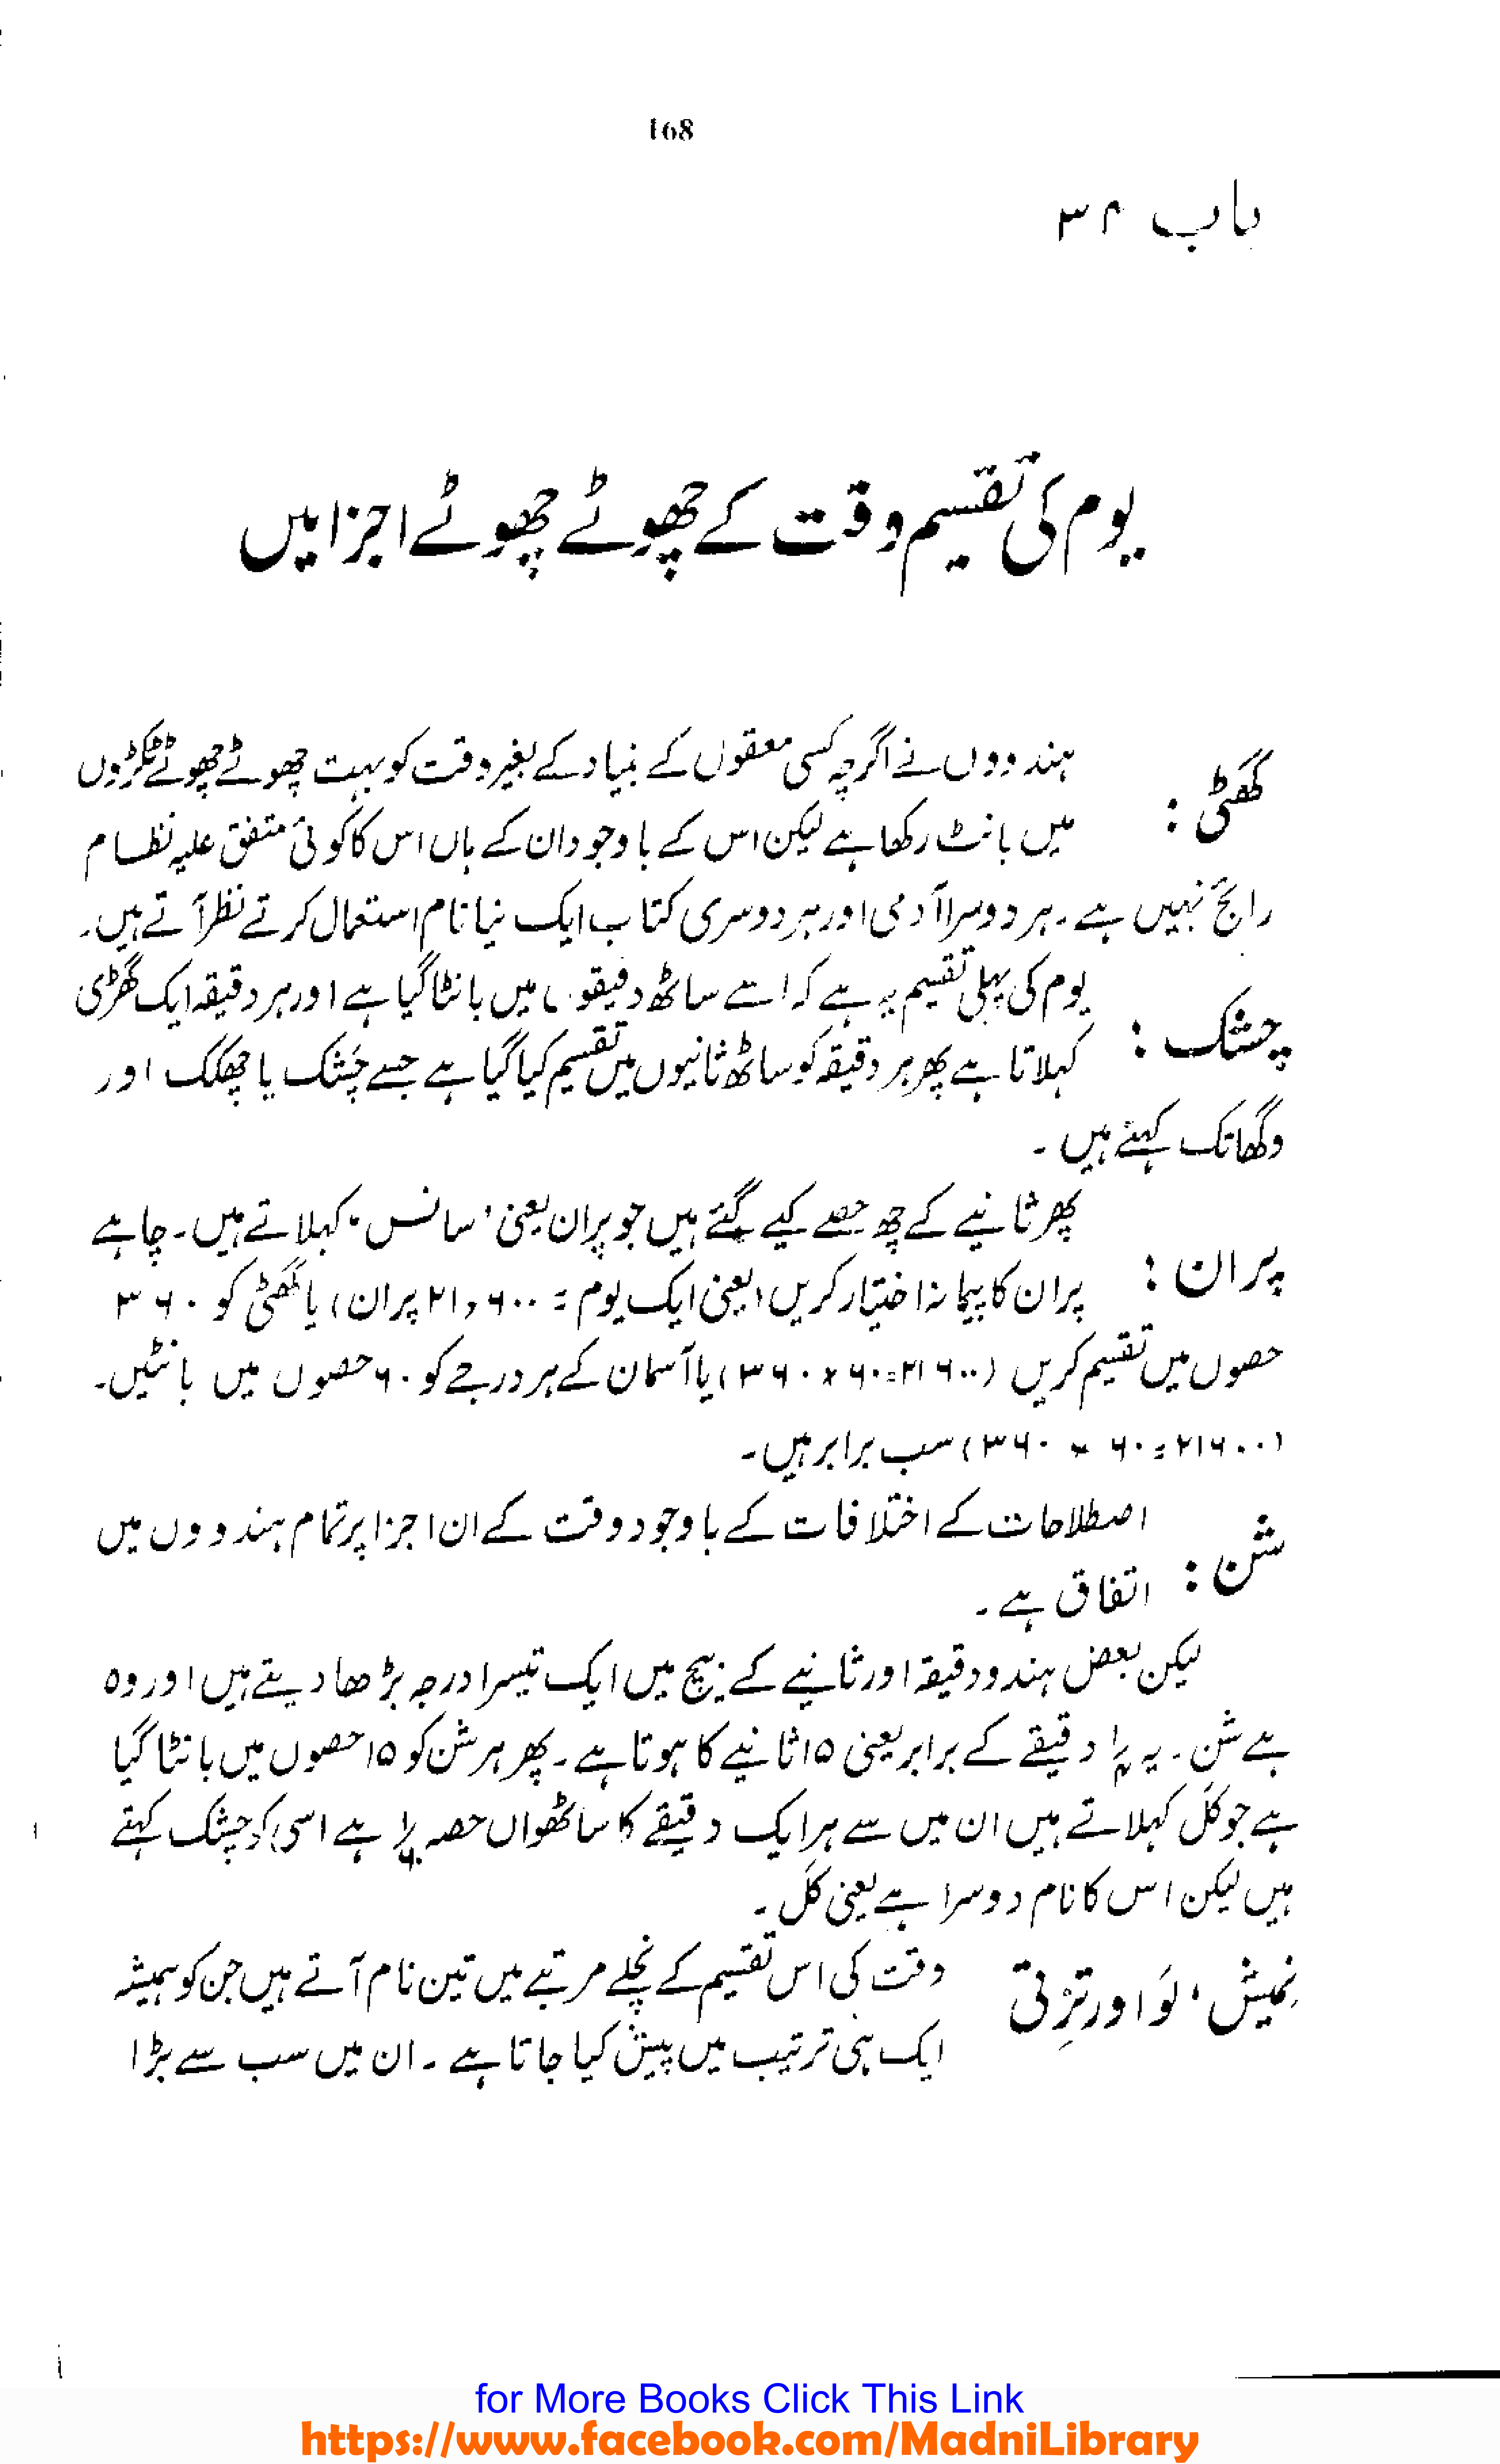 168
باب ۳۴
یوم کی تقسیم وقت کے چھوٹے چھوٹے اجزا میں
گھٹی :
ہندووں نے اگرچہ کسی معقول کے بنیاد کے بغیر وقت کو بہت چھوٹے چھوٹے ٹکڑوں
میں بانٹ رکھا ہے لیکن اس کے باوجود ان کے ہاں اس کا کوئی متفق علیہ نظام
رائج نہیں ہے ۔ ہر دوسرا آدمی اور ہر دوسری کتاب ایک نیا نام استعمال کرتے نظر آتے ہیں ۔
چشک :
یوم کی پہلی تقسیم یہ ہے کہ اسے ساٹھ دقیقوں میں بانٹا گیا ہے اور ہر دقیقہ ایک گھڑی
کہلاتا ہے پھر ہر دقیقہ کو ساٹھ ثانیوں میں تقسیم کیا گیا ہے جسے چَشَک یا چھکک اور
وگھاتک کہتے ہیں ۔
پران :
پھر ثانیے کے چھ حصے کیے گئے ہیں جو پران یعنی 'سانس' کہلاتے ہیں ۔ چاہے
پران کا پیمانہ اختیار کریں (یعنی ایک یوم = ۲۱,۶۰۰ پران) یا گھٹی کو ۳۶۰
حصوں میں تقسیم کریں (۲۱۶۰۰=۶۰ x ۳۶۰) یا آسمان کے ہر درجے کو ۶۰ حصوں میں بانٹیں ۔
(۲۱۶۰۰=۶۰ × ۳۶۰) سب برابر ہیں ۔
شن :
اصطلاحات کے اختلافات کے باوجود وقت کے ان اجزا پر تمام ہندووں میں
اتفاق ہے ۔
لیکن بعض ہندو دقیقہ اور ثانیے کے بیچ میں ایک تیسرا درجہ بڑھا دیتے ہیں اور وہ
ہے شن ۔ یہ ¼ دقیقے کے برابر یعنی ۱۵ ثانیے کا ہوتا ہے ۔ پھر ہر شن کو ۱۵ حصوں میں بانٹا گیا
ہے جو کَل کہلاتے ہیں ان میں سے ہر ایک دقیقے کا ساٹھواں حصہ ۱/۶۰ ہے اسی کو چشک کہتے
ہیں لیکن اس کا نام دوسرا ہے یعنی کَل ۔
نِمیش ، لَو اور تِرُتی
وقت کی اس تقسیم کے نچلے مرتبے میں تین نام آتے ہیں جن کو ہمیشہ
ایک ہی ترتیب میں پیش کیا جاتا ہے ۔ ان میں سب سے بڑا
for More Books Click This Link
https://www.facebook.com/MadniLibrary